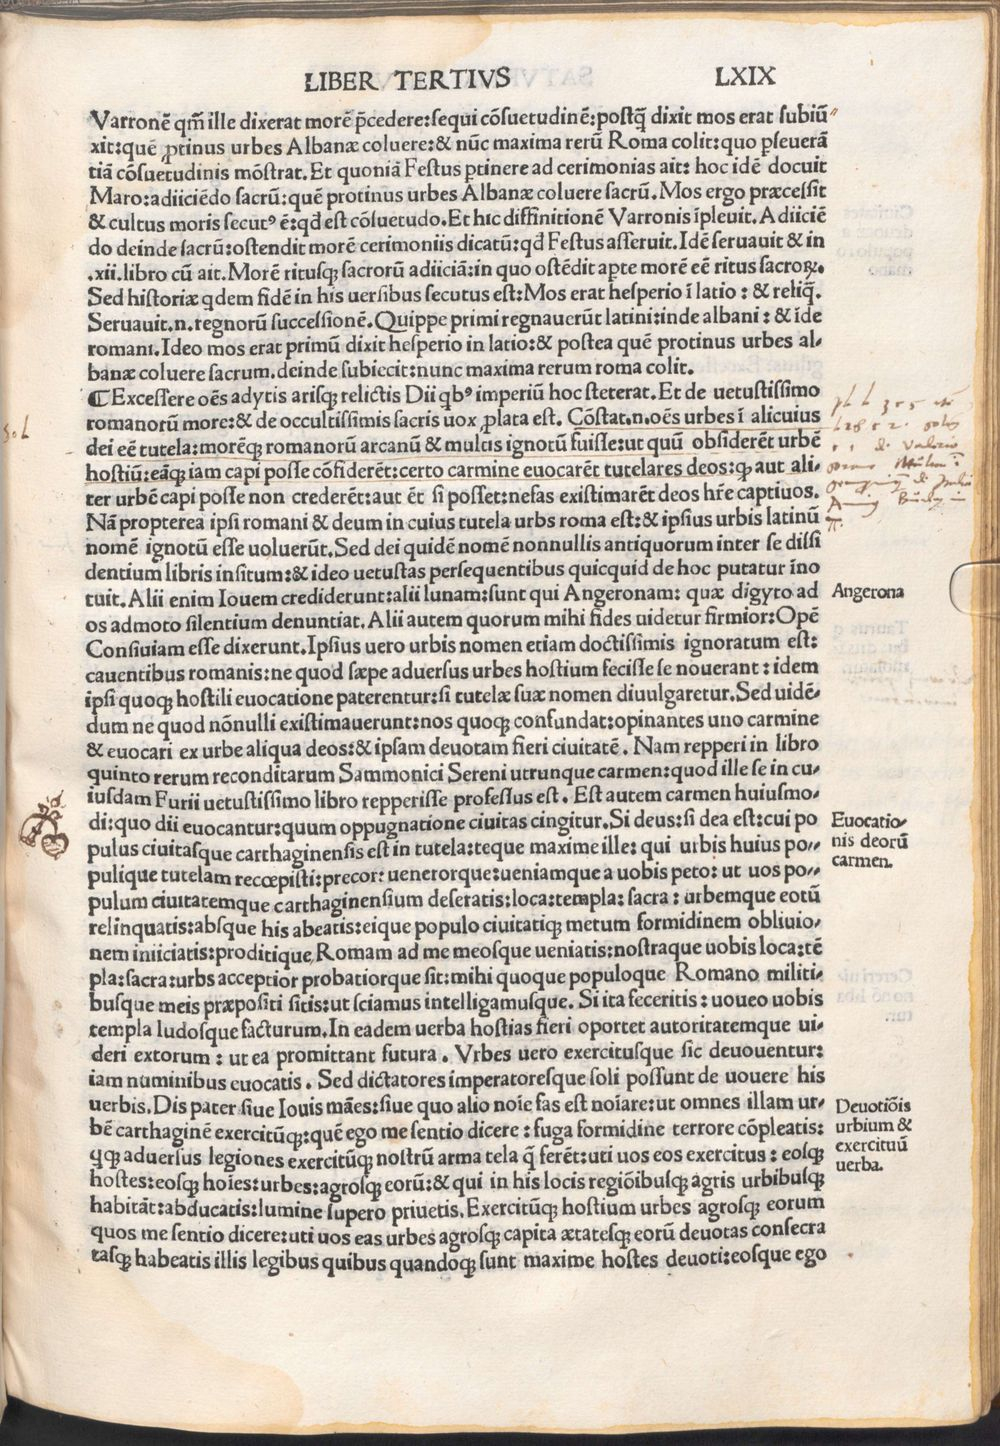 LIBER TERTIVS LXIX
Varronē qm̄ ille dixerat morē p̄cedere:sequi cōsuetudinē:postq̄ dixit mos erat subiū
xit:quē ꝓtinus urbes Albanæ coluere:& nūc maxima rerū Roma colit:quo ꝑseuerā
tiā cōsuetudinis mōstrat.Et quoniā Festus ꝑtinere ad cerimonias ait: hoc idē docuit
Maro:adiiciēdo sacrū:quē protinus urbes Albanæ coluere sacrū.Mos ergo præcessit
& cultus moris secutꝰ ē:qd̄ est cōsuetudo.Et hic diffinitionē Varronis īpleuit.Adiiciē
do deinde sacrū:ostendit morē cerimoniis dicatū:qd̄ Festus asseruit.Idē seruauit & in
.xii.libro cū ait.Morē ritusqꝫ sacrorū adiiciā:in quo ostēdit aꝑte morē eē ritus sacroꝝ.
Sed historiæ qdem fidē in his uersibus secutus est:Mos erat hesperio ī latio: & reliq̄.
Seruauit.n.regnorū successionē.Quippe primi regnauerūt latini:inde albani: & īde
romani.Ideo mos erat primū dixit hesperio in latio:& postea quē protinus urbes al-
banæ coluere sacrum.deinde subiecit:nunc maxima rerum roma colit.
¶Excessere oēs adytis arisqꝫ relictis Dii qbꝰ imperiū hoc steterat.Et de uetustissimo
romanorū more:& de occultissimis sacris uox ꝓlata est. Cōstat.n.oēs urbes ī alicuius
dei eē tutela:morēqꝫ romanorū arcanū & multis ignotū fuisse:ut quū obsiderēt urbē
hostiū:eāqꝫ iam capi posse cōfiderēt:certo carmine euocarēt tutelares deos:qꝫ aut ali-
ter urbē capi posse non crederēt:aut ēt si posset:nefas existimarēt deos hr̄e captiuos.
Nā propterea ipsi romani & deum in cuius tutela urbs roma est:& ipsius urbis latinū
nomē ignotū esse uoluerūt.Sed dei quidē nomē nonnullis antiquorum inter se dissi
dentium libris insitum:& ideo uetustas persequentibus quicquid de hoc putatur īno
tuit.Alii enim Iouem crediderunt:alii lunam:sunt qui Angeronam: quæ digyto ad
os admoto silentium denuntiat.Alii autem quorum mihi fides uidetur firmior:Opē
Consiuiam esse dixerunt.Ipsius uero urbis nomen etiam doctissimis ignoratum est:
cauentibus romanis:ne quod sæpe aduersus urbes hostium fecisse se nouerant: idem
ipsi quoqꝫ hostili euocatione paterentur:si tutelæ suæ nomen diuulgaretur.Sed uidē-
dum ne quod nōnulli existimauerunt:nos quoqꝫ confundat:opinantes uno carmine
& euocari ex urbe aliqua deos:& ipsam deuotam fieri ciuitatē. Nam repperi in libro
quinto rerum reconditarum Sammonici Sereni utrunque carmen:quod ille se in cu-
iusdam Furii uetustissimo libro repperisse professus est. Est autem carmen huiusmo-
di:quo dii euocantur:quum oppugnatione ciuitas cingitur.Si deus:si dea est:cui po
pulus ciuitasque carthaginensis est in tutela:teque maxime ille: qui urbis huius po-
pulique tutelam recœpisti:precor: uenerorque:ueniamque a uobis peto: ut uos po-
pulum ciuitatemque carthaginensium deseratis:loca:templa: sacra: urbemque eotū
relinquatis:absque his abeatis:eique populo ciuitatiqꝫ metum formidinem obliuio-
nem iniiciatis:proditique Romam ad me meosque ueniatis:nostraque uobis loca:tē
pla:sacra:urbs acceptior probatiorque sit:mihi quoque populoque Romano militi-
busque meis præpositi sitis:ut sciamus intelligamusque. Si ita feceritis: uoueo uobis
templa ludosque facturum.In eadem uerba hostias fieri oportet autoritatemque ui-
deri extorum: ut ea promittant futura. Vrbes uero exercitusque sic deuouentur:
iam numinibus euocatis. Sed dictatores imperatoresque soli possunt de uouere his
uerbis.Dis pater siue Iouis māes:siue quo alio noīe fas est noīare:ut omnes illam ur-
bē carthaginē exercitūqꝫ:quē ego me sentio dicere: fuga formidine terrore cōpleatis:
qqꝫ aduersus legiones exercitūqꝫ nostrū arma tela q̄ ferēt:uti uos eos exercitus: eosqꝫ
hostes:eosqꝫ hoīes:urbes:agrosqꝫ eorū:& qui in his locis regiōibusqꝫ agris urbibusqꝫ
habitāt:abducatis:lumine supero priuetis.Exercitūqꝫ hostium urbes agrosqꝫ eorum
quos me sentio dicere:uti uos eas urbes agrosqꝫ capita ætatesqꝫ eorū deuotas consecra
tasqꝫ habeatis illis legibus quibus quandoqꝫ sunt maxime hostes deuoti:eosque ego
Angerona
Euocatio-
nis deorū
carmen.
Deuotiōis
urbium &
exercituū
uerba.